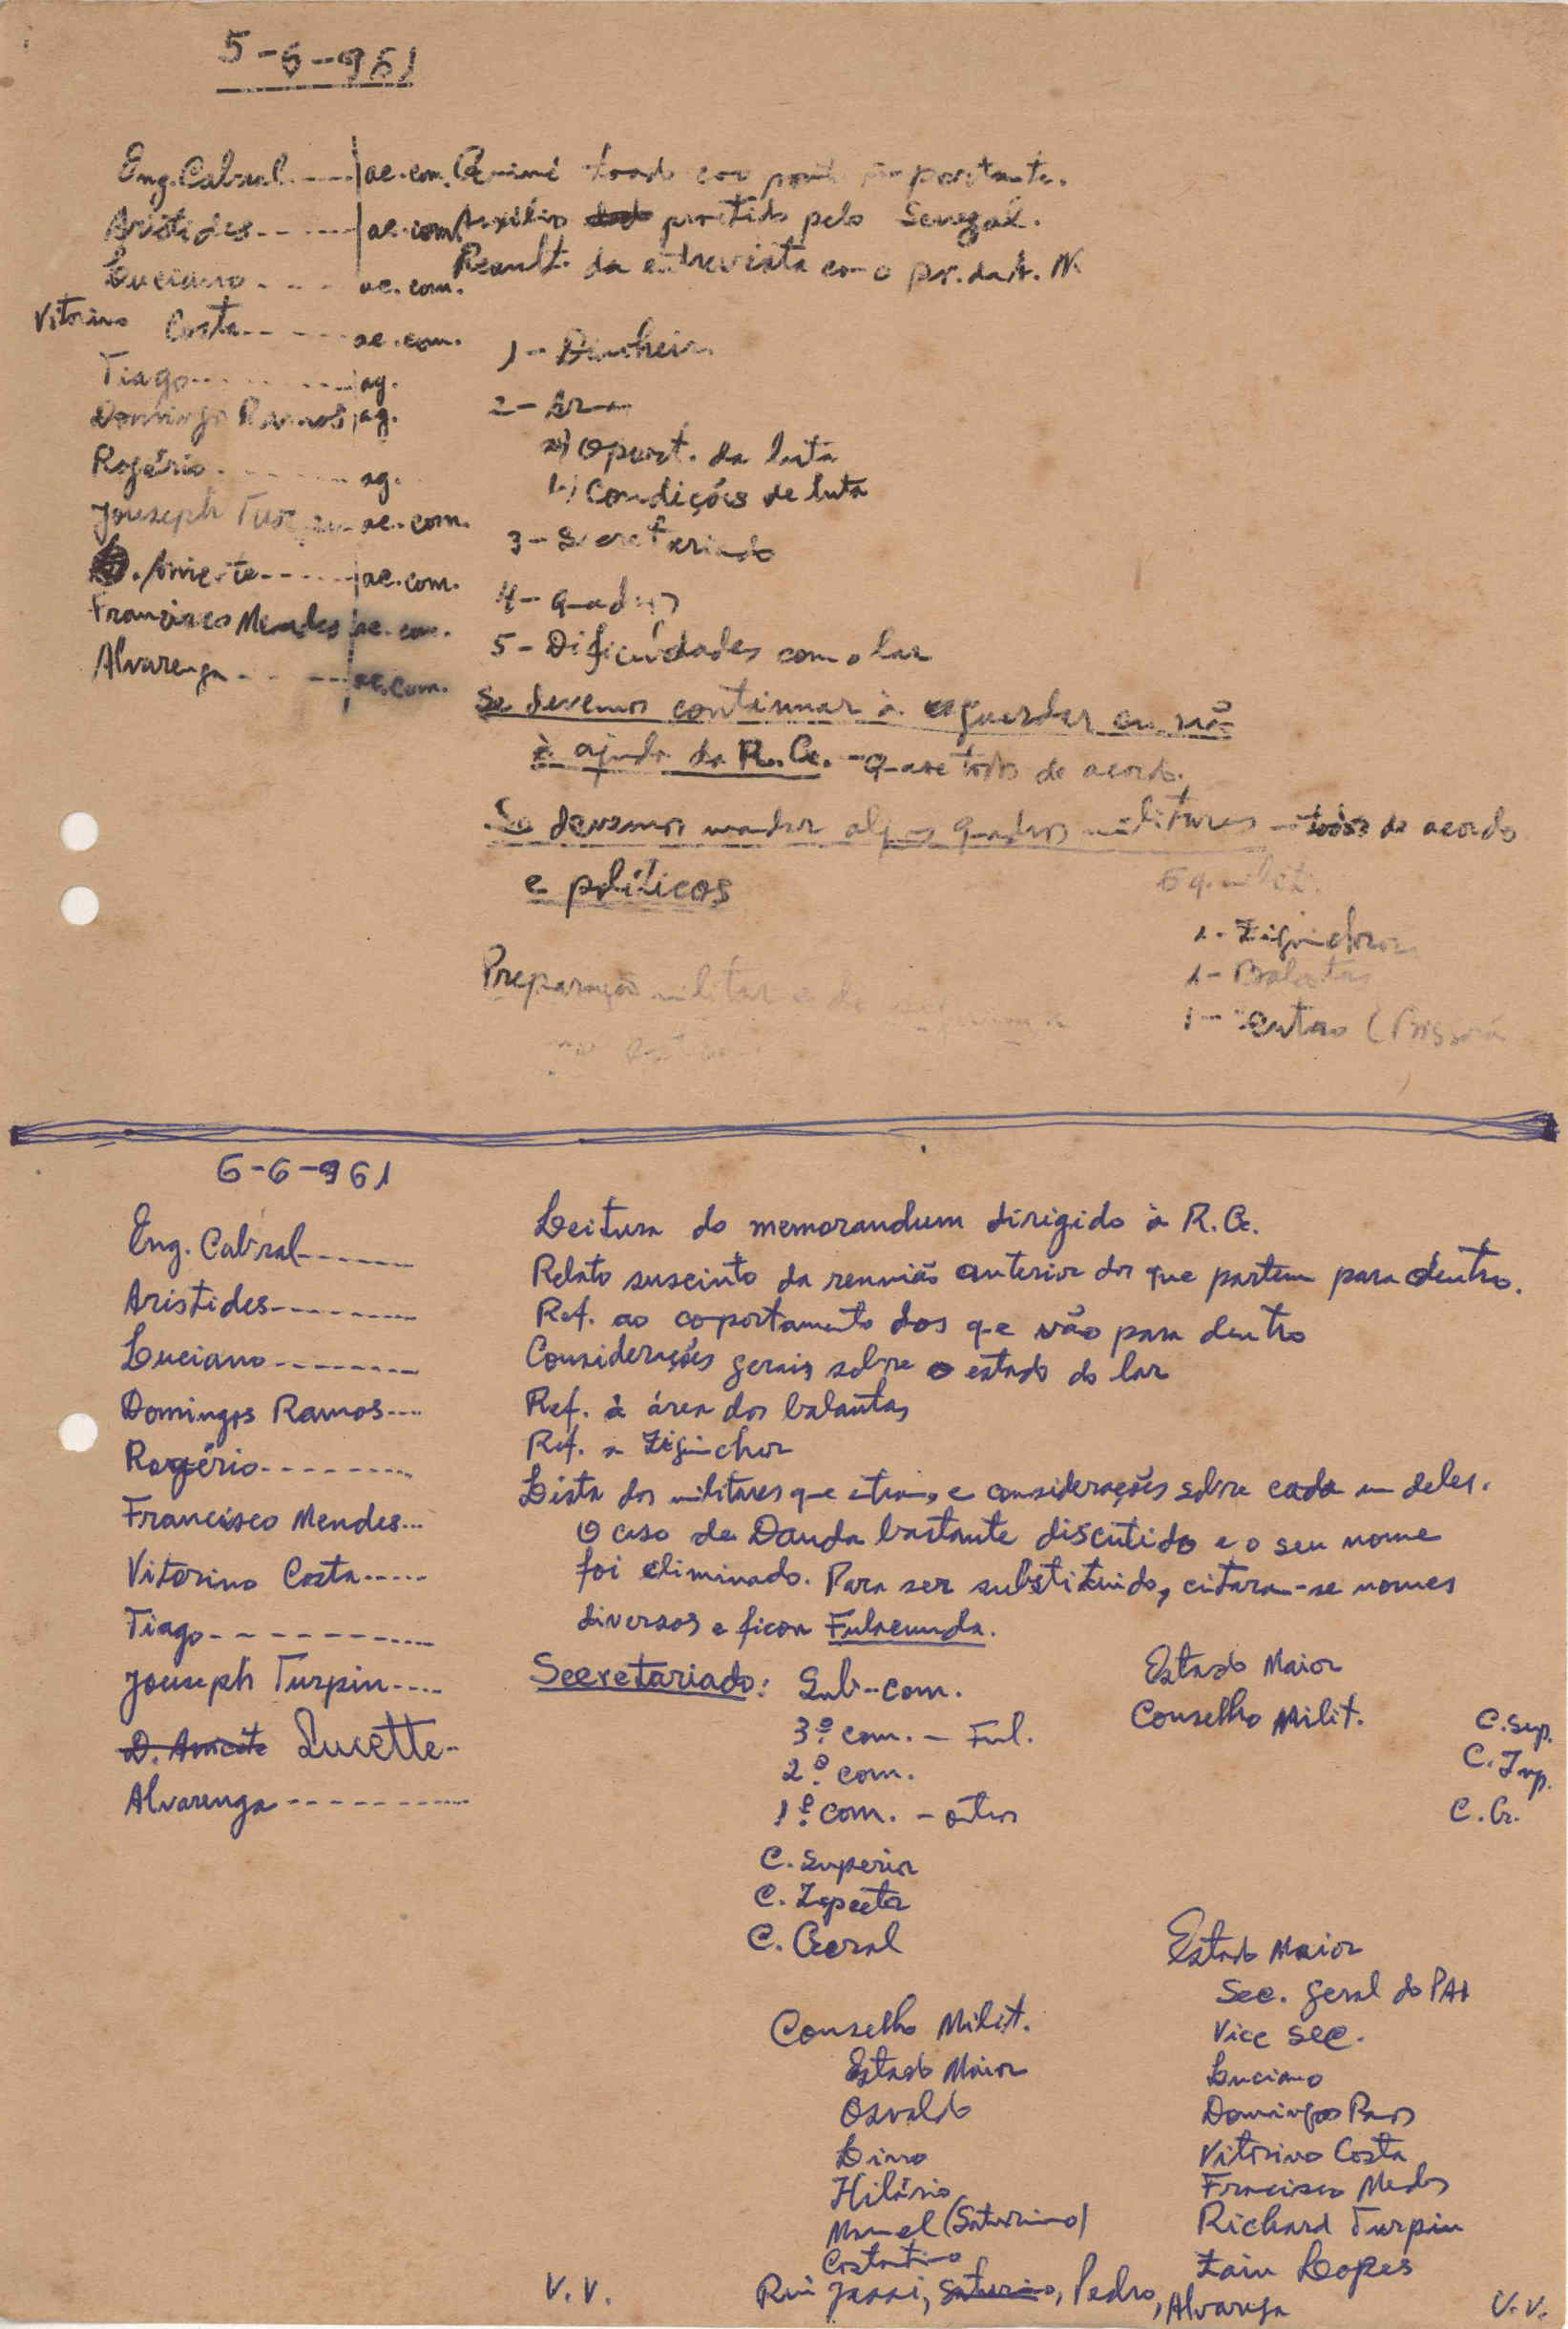 5-6-961
Eng. Cabral ---- ac.com.
Aristides ------ ac.com.
Luciano - - - - ac.com.
Vitorino Costa -- ---- ac.com.
Tiago --- ---- ag.
Domingo Ramos ag.
Rogério - ---- ag.
Jouseph Turpin -- ac.com.
Anicete ------ ac.com.
Francisco Mendes ac.com.
Alvarenga - - --- ac.com.
portante.
Auxílio pelo Senegal.
Result. da entrevista com o pr. da A. N
1 - Dinheiro
2 -
a) Oport. da luta
b) Condições de luta
3 - Secretariado
4 - quadros
5 - Dificuldades com o lar
Se devemos continuar à aguardar ou não
à ajuda da R.G. - Quase todos de acordo.
Se devemos mandar alguns quadros militares - todos de acordo
e políticos
1 - Ziguinchor
1 - Balantas
1 - Centro
Preparação militar e de
6-6-961
Eng. Cabral ------
Aristides ---------
Luciano ---------
Domingos Ramos ---
Rogério ---------
Francisco Mendes ...
Vitorino Costa -----
Tiago -----------
Jouseph Turpin ----
D. Anicete Lucette -
Alvarenga -----------
Leitura do memorandum dirigido à R.G.
Relato suscinto da reunião anterior dos que partem para dentro.
Ref. ao comportamento dos que vão para dentro
Considerações gerais sobre o estado do lar
Ref. à área dos balantas
Ref. a Ziguinchor
Lista dos militares que entram, e considerações sobre cada um deles.
O caso de Dauda bastante discutido e o seu nome
foi eliminado. Para ser substituido, citaram-se nomes
diversos e ficou Fulacunda.
Secretariado: Sub-com.
3º com. - Ful.
2º com.
1º com. - outros
C. Superior
C. Inspector
C. Geral
Estado Maior
Conselho Milit.
C. Sup.
C. Insp.
C. G.
Conselho Milit.
Estado Maior
Osvaldo
Lino
Hilário
Manuel (Saturnino)
Constantino
Rui Jassi, Saturnino, Pedro, Alvarenga
Estado Maior
Sec. geral do PAI
Vice Sec.
Luciano
Domingos Ramos
Vitorino Costa
Francisco Mendes
Richard Turpin
Zain Lopes
V.V.
V.V.